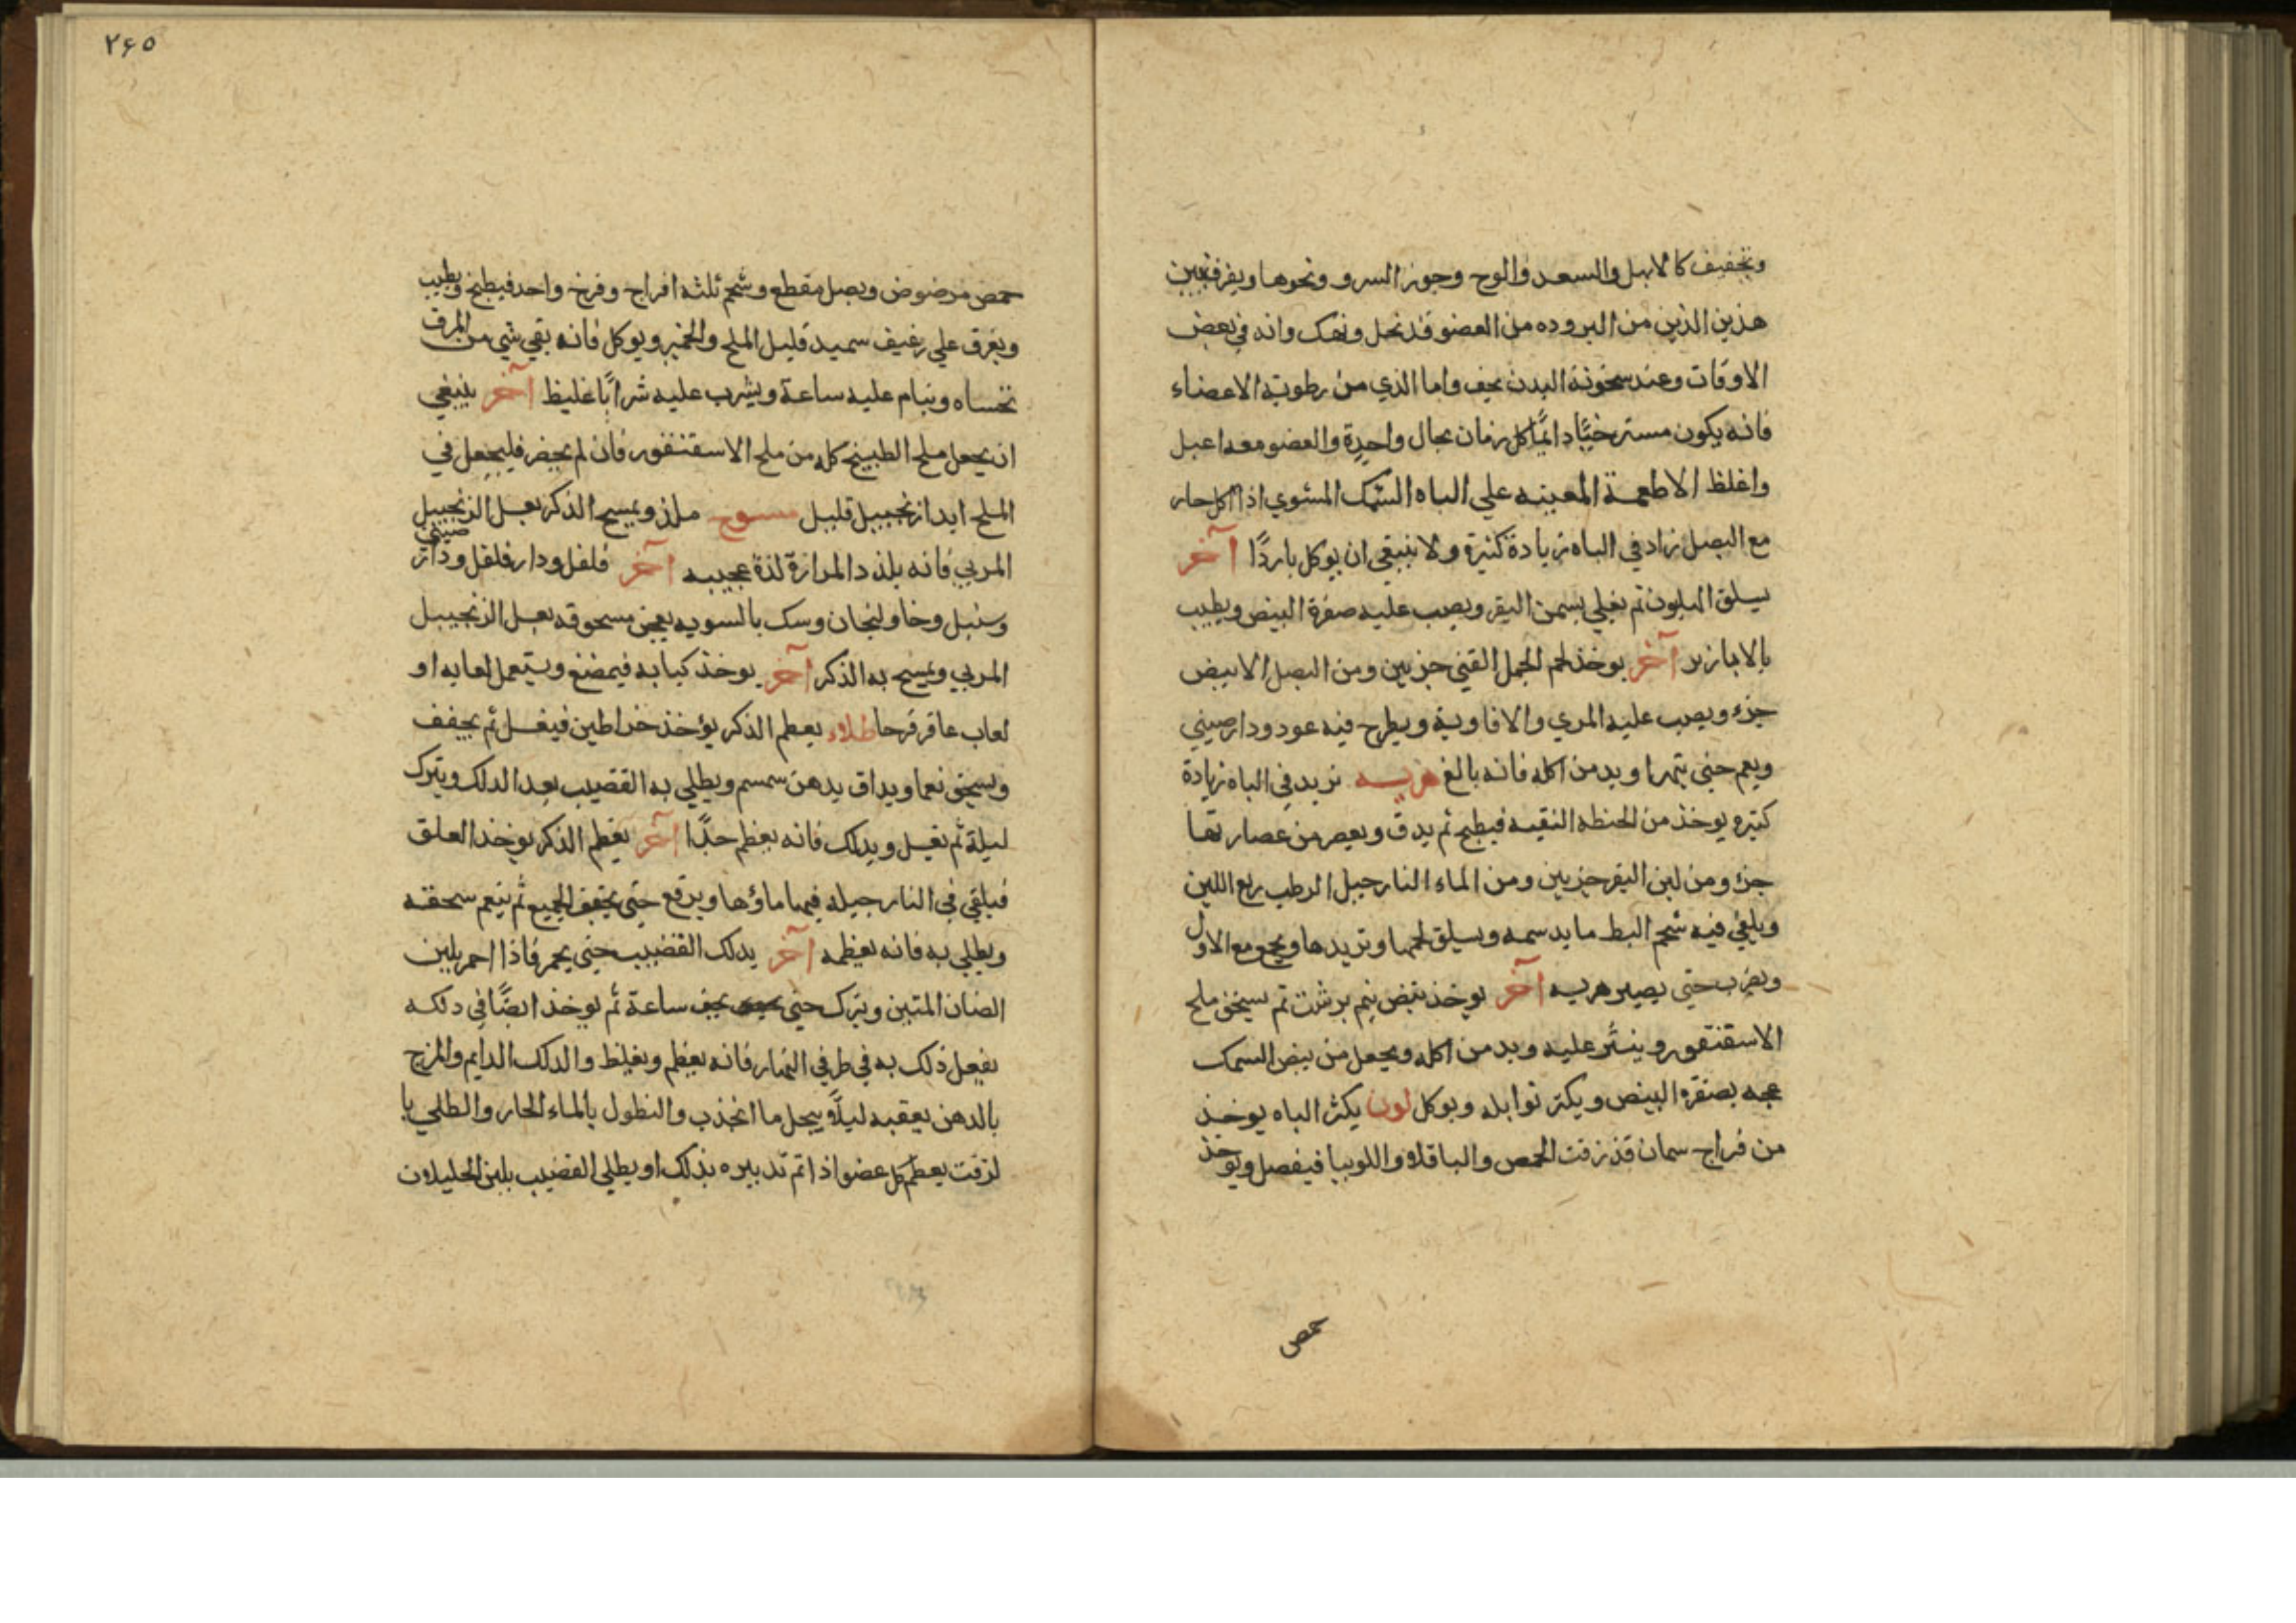 وتجفيف كالابهل والسعد والوج وجوز السرو ونحوها ويفرق بين
هذين الذين من البروده من العضو قد نحل ونهك وانه في بعض
الاوقات وعند سخونة البدن يجف واما الذي من رطوبة الاعضاء
فانه يكون مسترخيًا دائمًا كل زمان بحال واحدة والعضو معه اعبل
واغلظ الاطعمة المعينه علي الباه السمك المشوي اذا اكل حار
مع البصل زاد في الباه زيادة كثيرة ولا ينبغي ان يوكل باردًا آخر
يسلق الهليون ثم يغلي بسمن البقر ويصب عليه صفرة البيض ويطيب
بالابازير آخر يوخذ لحم الجمل الفتي جزيين ومن البصل الابيض
جزء ويصب عليه المري والافاوية ويطرح فيه عود ودارصيني
ويعم حتي يتهرا ويدمن اكله فانه بالغ هريسه تزيد في الباه زيادة
كثيره يوخذ من الحنطه النقيه فيطبخ ثم يدق ويعصر من عصارتها
جزء ومن لبن البقر جزيين ومن الماء النارجيل الرطب ربع اللبن
ويلقي فيه شحم البط ما يدسمه ويسلق لحمها وتزيدها ويجمع مع الاول
ويضرب حتي يصير هريسه آخر يوخذ بيض نيم برشت ثم يسحق ملح
الاسقنقور وينثر عليه ويدمن اكله ويجعل من بيض السمك
عجه بصفرة البيض ويكثر توابله ويوكل لون يكثر الباه يوخذ
من فراج سمان قد زقت الحمص والباقلاء واللوبيا فيفصل ويوخذ
حمص
٢٦٥
حمص مرضوض وبصل مقطع وشحم ثلثه افراج وفرخ واحد فيطبخ ويطيب
ويغرق علي رغيف سميد قليل الملح والخمير ويوكل فانه بقي شي من المرق
تحساه وينام عليه ساعة ويشرب عليه شرابًا غليظ آخر ينبغي
ان يجعل ملح الطبيخ كله من ملح الاسقنقور فان لم يحضر فليجعل في
الملح ابدا زنجبيل قليل مسوح ملذ ويمسح الذكر بعسل الزنجبيل
المربي فانه يلذذ المراة لذة عجيبه آخر فلفل ودار فلفل ودار صيني
وسنبل وخاولنجان وسك بالسويه يعجن مسحوقه بعسل الزنجبيل
المربي ويمسح به الذكر آخر يوخذ كبابه فيمضغ ويستعمل لعابه او
لعاب عاقرقرحا طلاء يعظم الذكر يؤخذ خراطين فيغسل ثم يجفف
ويسحق نعما ويداف بدهن سمسم ويطلي به القضيب بعد الدلك ويترك
ليلة ثم يغسل ويدلك فانه يعظم جدًا آخر يعظم الذكر يوخذ العلق
فيلقي في النارجيله فيها ماؤها ويرفع حتي يجفف الجميع ثم ينعم سحقه
ويطلي به فانه يعظمه آخر يدلك القضيب حتي يحمر فاذا احمر بلبن
الضان المتين ويترك حتي يجف ساعة ثم يوخذ ايضًا في دلكه
يفعل ذلك به في طرفي النهار فانه يعظم ويغلظ والدلك الدايم والمزج
بالدهن يعقبه ليلًا يحل ما انجذب والنطول بالماء الحار والطلي با
لزفت يعظم كل عضو اذا تم تدبيره بذلك او يطلي القضيب بلبن